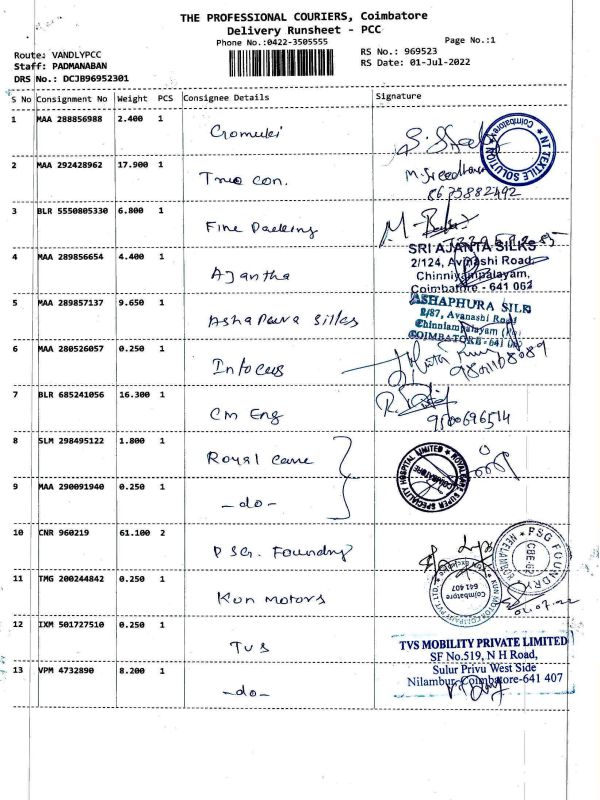 THE PROFESSIONAL COURIERS, Coimbatore
Delivery Runsheet - PCC
Phone No.:0422-3505555
Page No.:1
Route: VANDLYPCC
Staff: PADMANABAN
DRS No.: DCJB96952301
RS No.: 969523
RS Date: 01-Jul-2022
S No Consignment No Weight PCS Consignee Details Signature
1 MAA 288856988 2.400 1 Gomuki
NT TEXTILE SOLUTION Coimbatore
2 MAA 292428962 17.900 1 Trio Con.
M. Sreedharan
8675882492
3 BLR 5550805330 6.800 1 Fine Packing
4 MAA 289856654 4.400 1 Ajantha
SRI AJANTA SILKS
2/124, Avinashi Road,
Chinniyampalayam,
Coimbatore - 641 062
5 MAA 289857137 9.650 1 Ashapura Silks
ASHAPHURA SILK
2/87, Avanashi Road
Chinniampalayam
COIMBATORE - 641 062
6 MAA 280526057 0.250 1 Infocus
7 BLR 685241056 16.300 1 CM Eng
9500696514
8 SLM 298495122 1.800 1 Royal Care
ROYALCARE SUPER SPECIALITY HOSPITAL LIMITED COIMBATORE
9 MAA 290091940 0.250 1 -do-
10 CNR 960219 61.100 2 PSG. Foundry
PSG FOUNDRY
CBE-62
11 TMG 200244842 0.250 1 Kun Motors
KUN MOTOR COMPANY PVT LTD
Coimbatore
641 407
01.07.22
12 IXM 501727510 0.250 1 TVS
TVS MOBILITY PRIVATE LIMITED
SF No.519, N H Road,
Sulur Privu West Side
Nilambur, Coimbatore-641 407
13 VPM 4732890 8.200 1 -do-